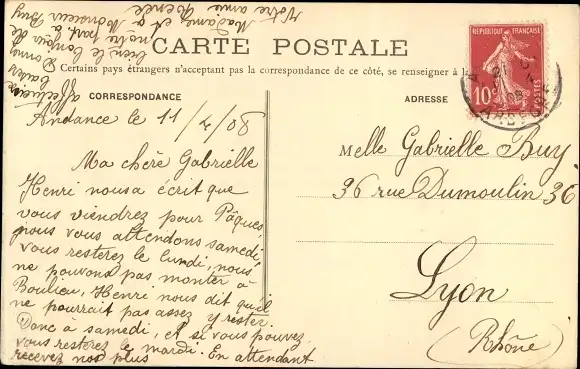 CARTE POSTALE
Certains pays étrangers n'acceptant pas la correspondance de ce côté, se renseigner à la
CORRESPONDANCE
Andance le 11/4/08
Ma chère Gabrielle
Henri nous a écrit que
vous viendrez pour Pâques,
nous vous attendons samedi,
vous resterez le lundi, nous
ne pouvons pas monter à
Boulieu, Henri nous dit qu'il
ne pourrait pas assez y rester.
Donc à samedi, et si vous pouvez
vous resterez le mardi. En attendant
recevez nos plus
affectueux
baisers
Donnez
bien le bonjour de
notre part à
Madame et à Monsieur Buy
Votre amie Renée
ADRESSE
Melle Gabrielle Buy
36 rue Dumoulin 36
Lyon
(Rhône)
REPUBLIQUE FRANÇAISE
10c
POSTES